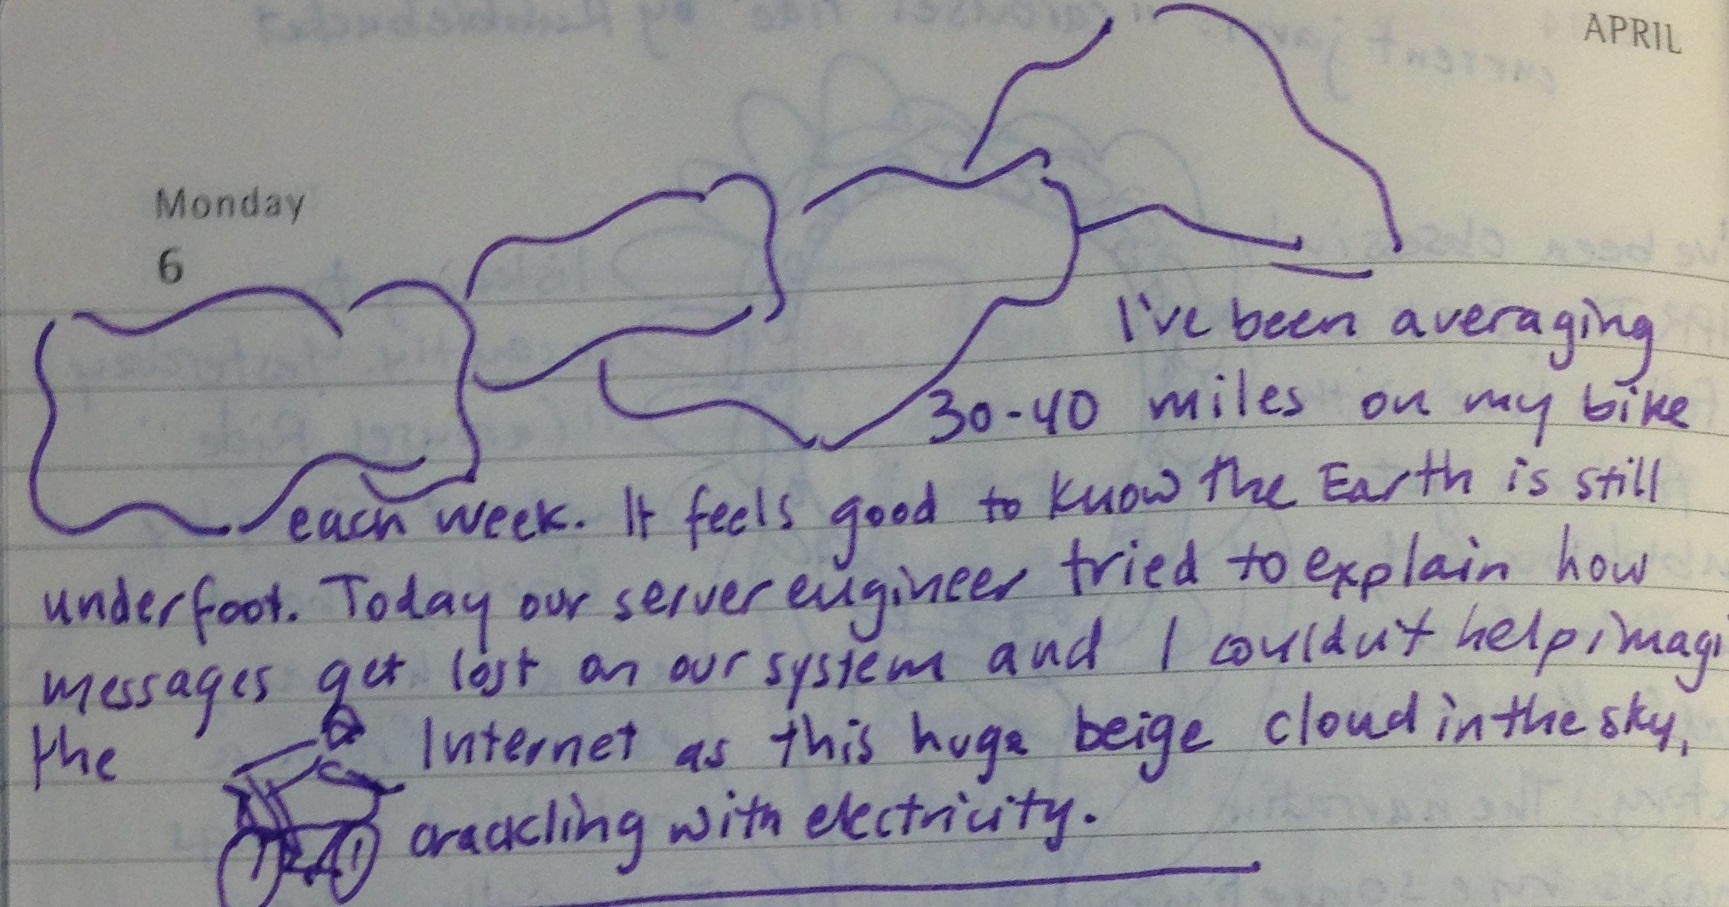 APRIL
Monday
6
I've been averaging
30-40 miles on my bike
each week. It feels good to know the Earth is still
underfoot. Today our server engineer tried to explain how
messages get lost on our system and I couldn't help imagi
the Internet as this huge beige cloud in the sky,
crackling with electricity.